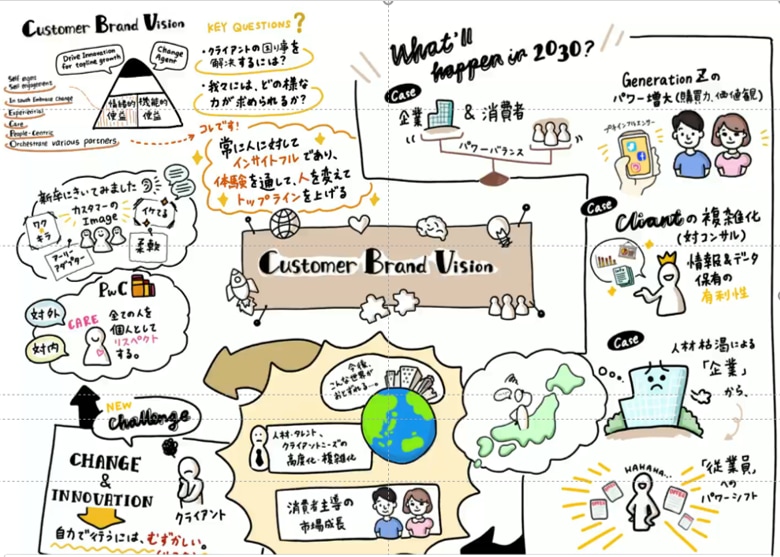 Customer Brand Vision
Drive Innovation
for topline growth
Change
Agent
Self mgmt
Self engagement
In south Embrace Change
Experiential
Care
People-Centric
Orchestrate various partners
情緒的
便益
機能的
便益
KEY QUESTIONS?
・クライアントの困り事を
解決するには?
・我々には、どの様な
力が求められるか?
コレです!
常に人に対して
インサイトフルであり、
体験を通して、人を変えて
トップラインを上げる
新卒にきいてみました
カスタマーの
Image
ワク
キラ
イケてる
アーリー
アダプター
柔軟
PwC
対外
対内
CARE
全ての人を
個人として
リスペクト
する。
NEW
Challenge
CHANGE
&
INNOVATION
自力で行うには、むずかしい。
クライアント
Customer Brand Vision
今後、
こんな世界が
おとずれる…。
人材・タレント、
クライアントニーズの
高度化・複雑化
消費者主導の
市場成長
What'll
happen in 2030?
Case
企業 & 消費者
パワーバランス
Generation Zの
パワー増大(購買力、価値観)
Case
Cliantの複雑化
(対コンサル)
情報&データ
保有の
有利性
Case
人材枯渇による
「企業」
から、
「従業員」
への
パワーシフト
HAHAHA...
OFFER
OFFER
OFFER